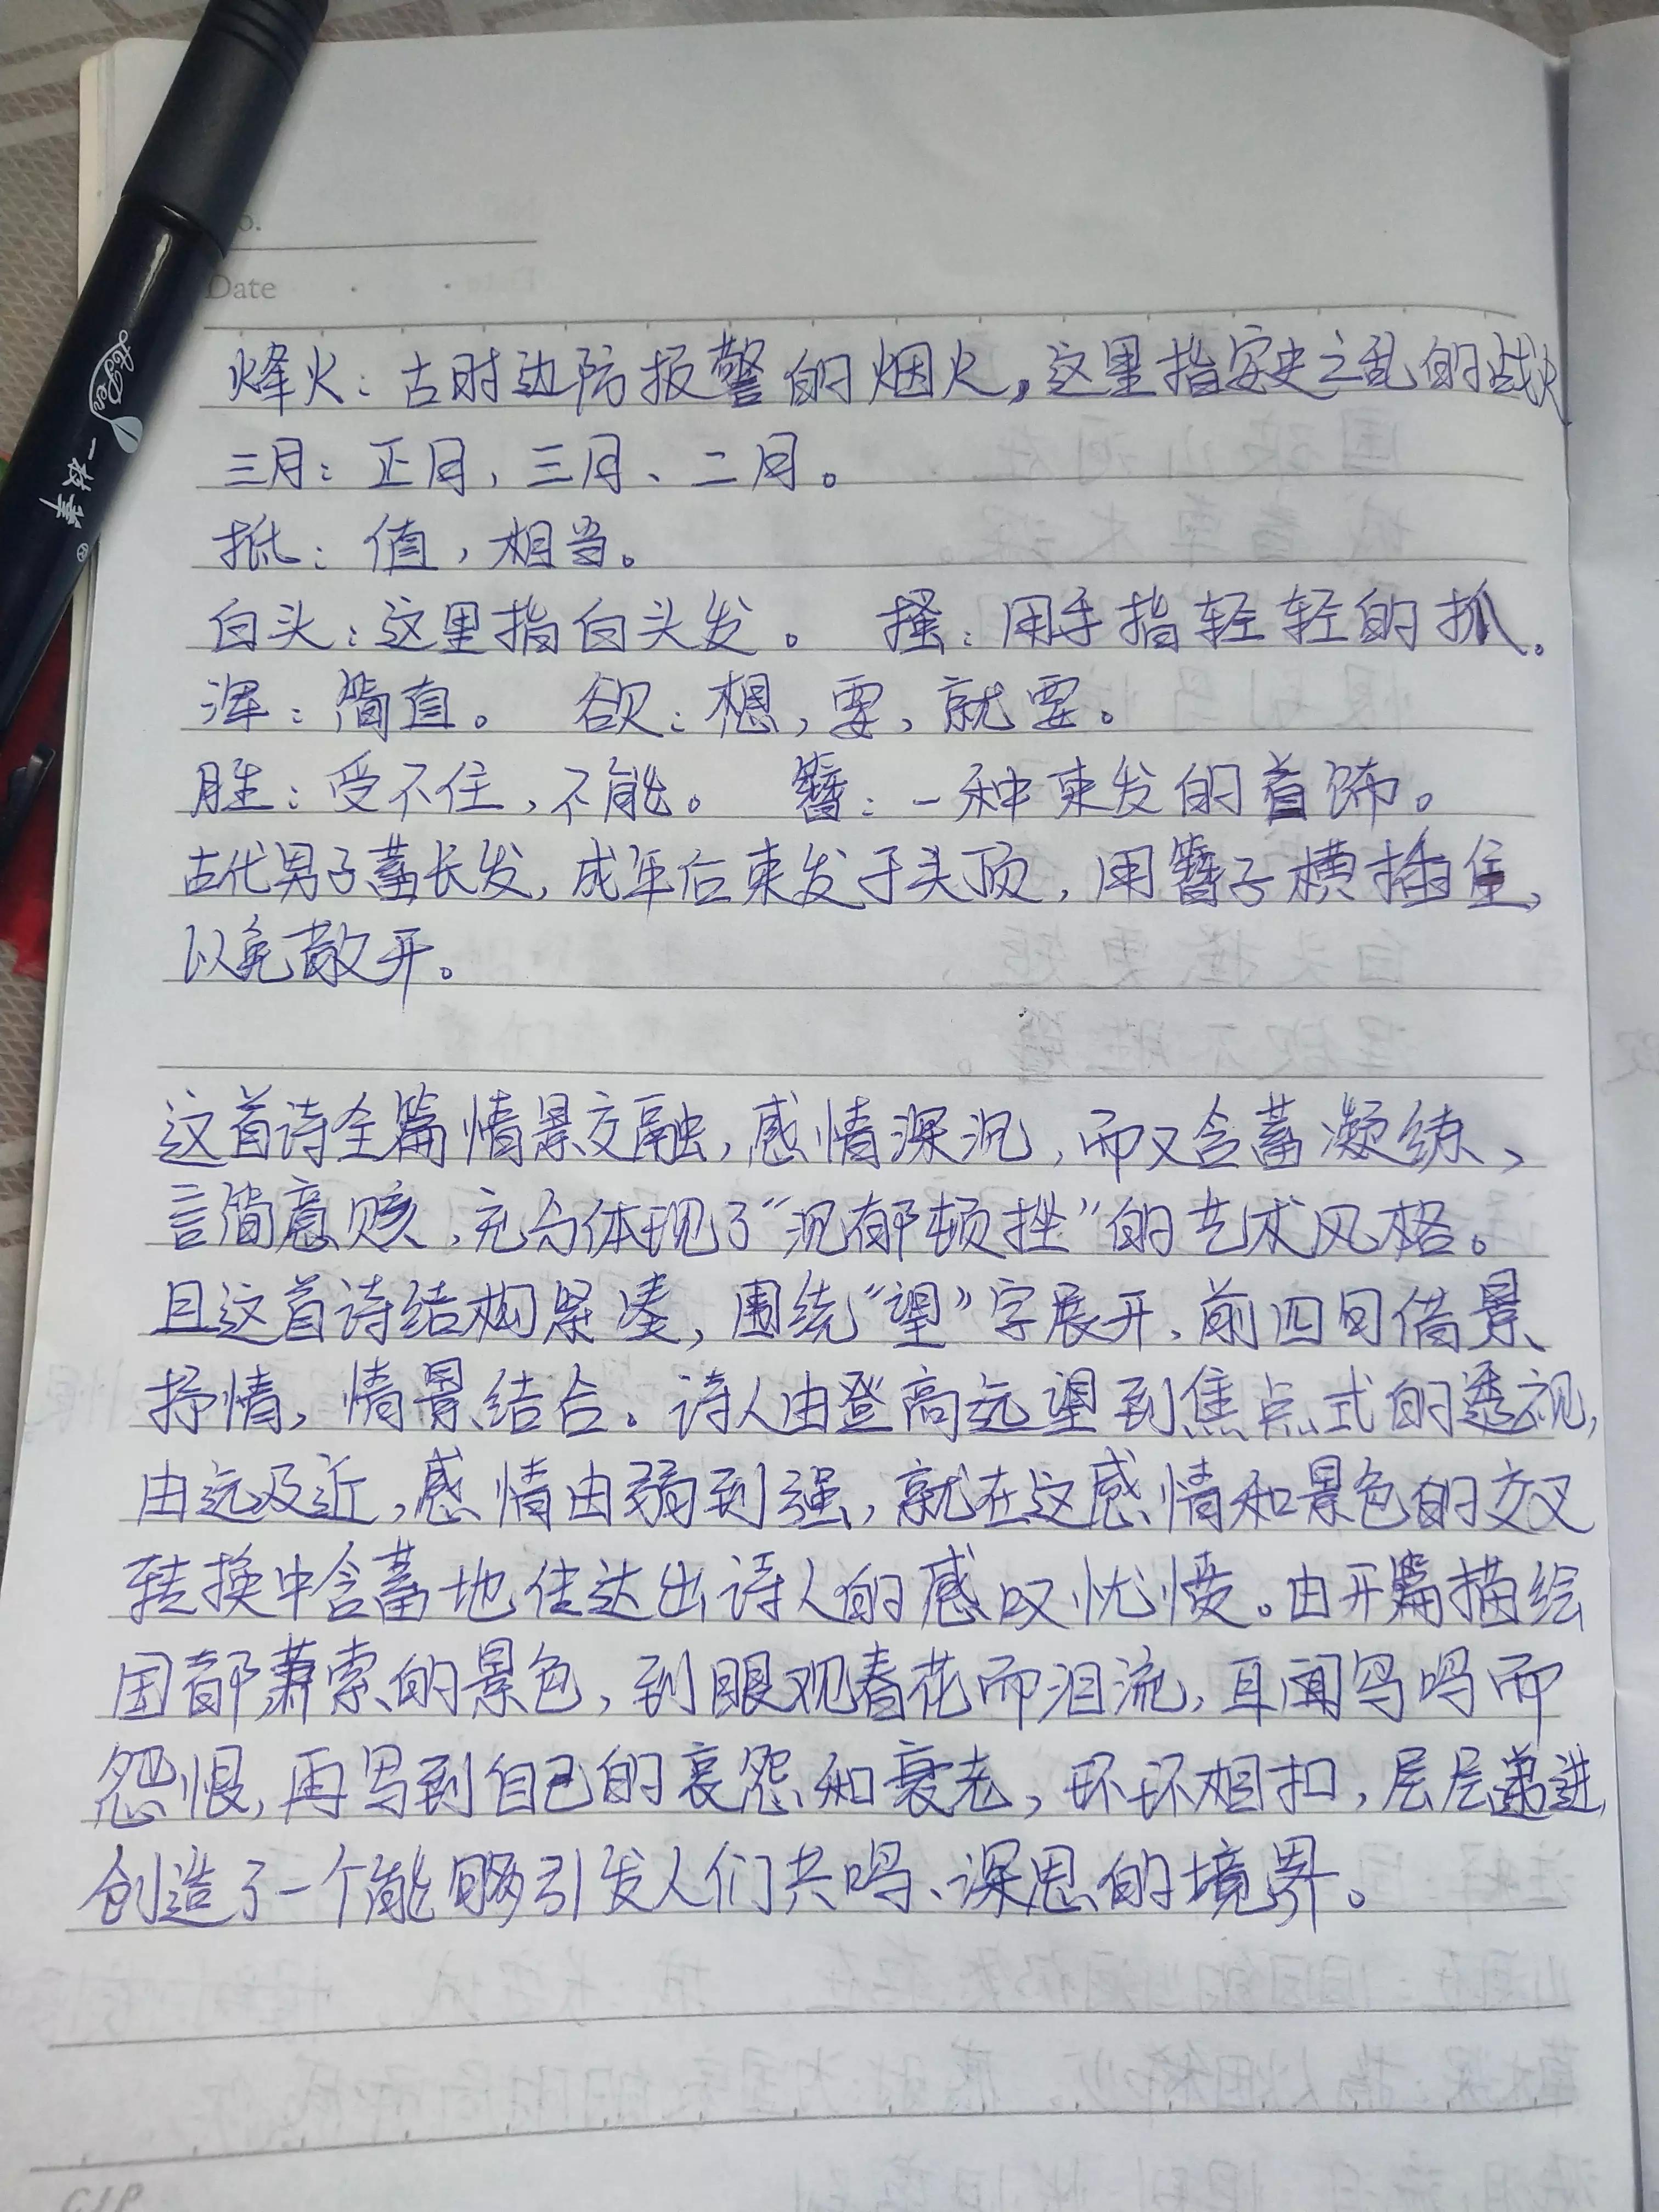 No.
Date
烽火：古时边防报警的烟火，这里指安史之乱的战火
三月：正月，三月、二月。
抵：值，相当。
白头：这里指白头发。 搔：用手指轻轻的抓。
浑：简直。 欲：想，要，就要。
胜：受不住，不能。 簪：一种束发的首饰。
古代男子蓄长发，成年后束发于头顶，用簪子横插住，
以免散开。
这首诗全篇情景交融，感情深沉，而又含蓄凝练、
言简意赅，充分体现了“沉郁顿挫”的艺术风格。
且这首诗结构紧凑，围绕“望”字展开，前四句借景
抒情，情景结合。诗人由登高远望到焦点式的透视，
由远及近，感情由弱到强，就在这感情和景色的交叉
转换中含蓄地传达出诗人的感叹忧愤。由开篇描绘
国都萧索的景色，到眼观春花而泪流，耳闻鸟鸣而
怨恨，再写到自己的哀怨和衰老，环环相扣，层层递进，
创造了一个能够引发人们共鸣、深思的境界。
一枝笔